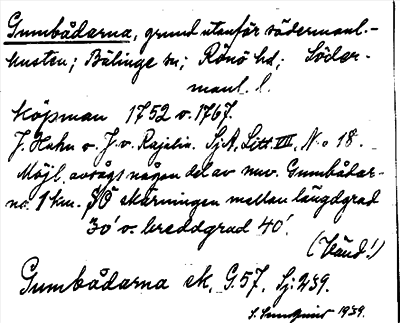 Gumbådarna, grund utanför södermanl.-
kusten; Bälinge sn; Rönö hd; Söder-
manl. l.
Köpman 1752 o. 1767.
J. Hahn o. J. v. Rajalin. SjA, Litt. VIII, No 18.
Möjl. avses någon del av nuv. Gumbådar-
na. 1 km. SO skärningen mellan längdgrad
30' o. breddgrad 40'.
(Vänd!)
Gumbådarna sk. G.57. Sj: 239.
1939.